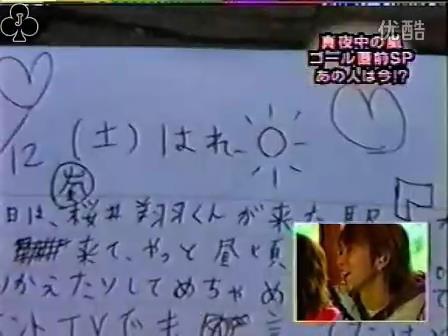 J
优酷
真夜中の嵐
ゴール直前SP
あの人は今!?
/12 (土) はれ
嵐
日は、桜井翔羽くんが来た
来て、やっと昼頃
かえたりしてめちゃめ
ントTVでも